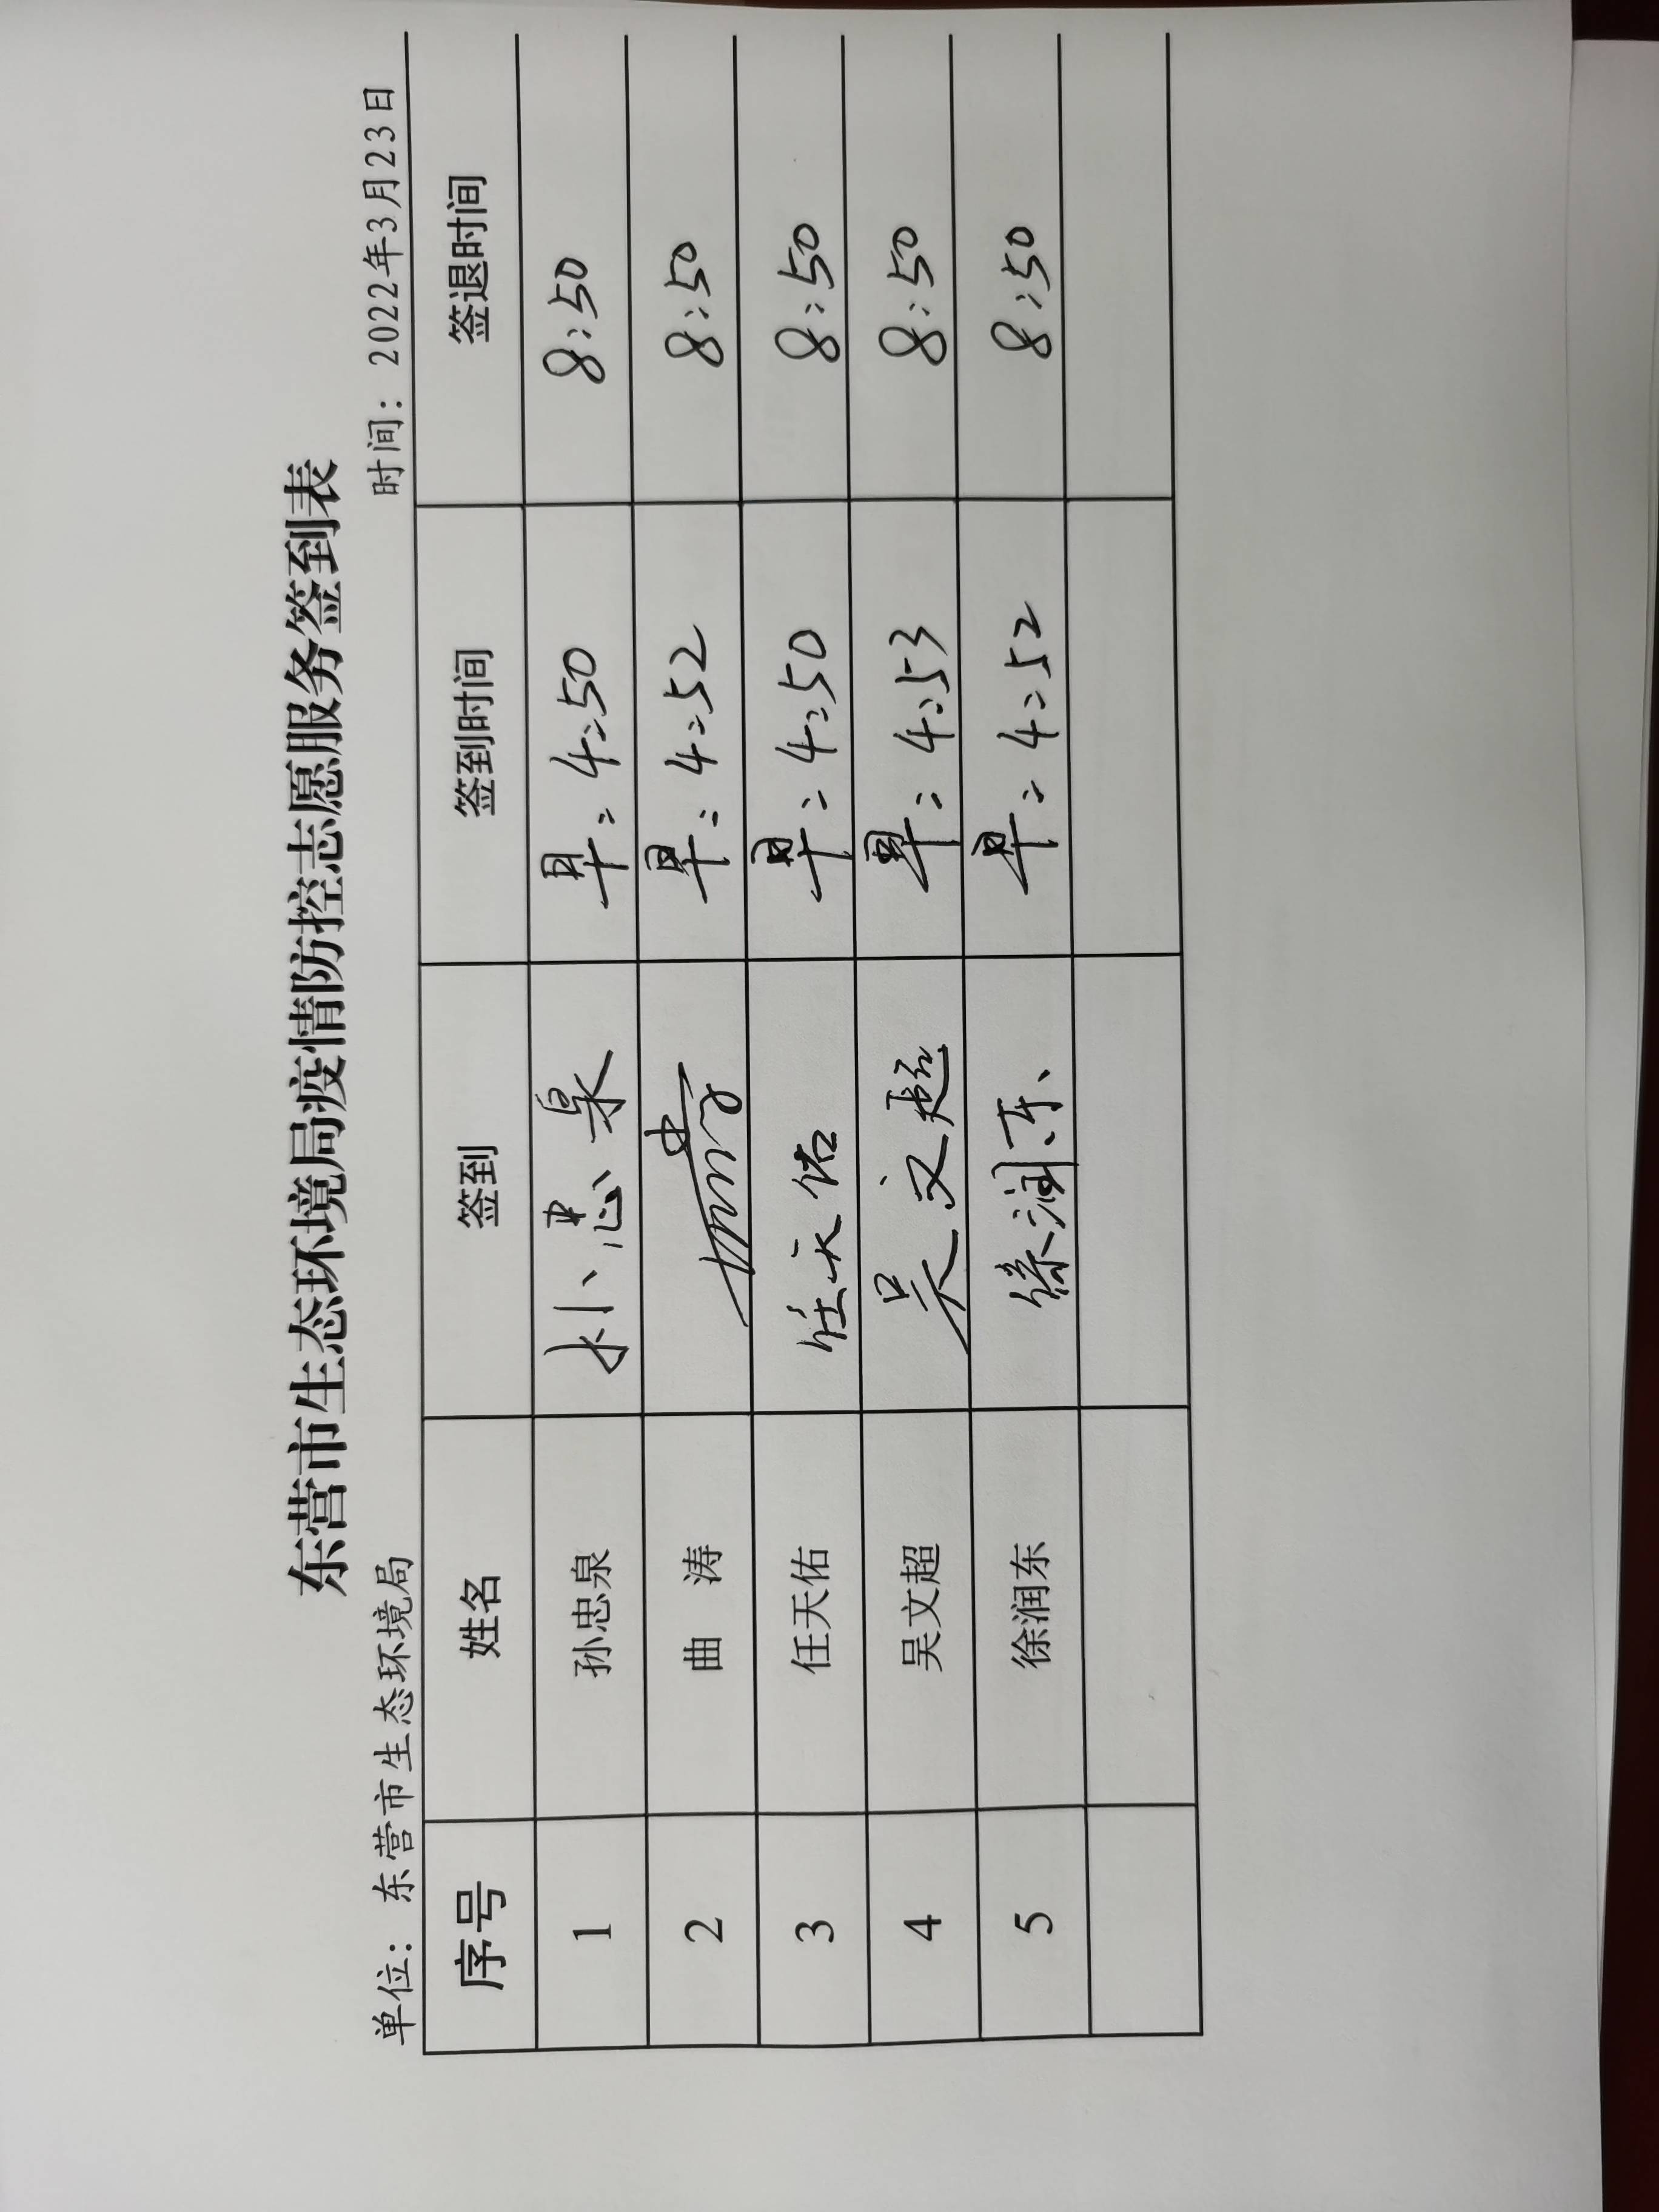 东营市生态环境局疫情防控志愿服务签到表
单位：东营市生态环境局 时间：2022年3月23日
序号 姓名 签到 签到时间 签退时间
1 孙忠泉 孙忠泉 早：4:50 8:50
2 曲 涛 曲涛 早：4:52 8:50
3 任天佑 任天佑 早：4:50 8:50
4 吴文超 吴文超 早：4:53 8:50
5 徐润东 徐润东 早：4:52 8:50